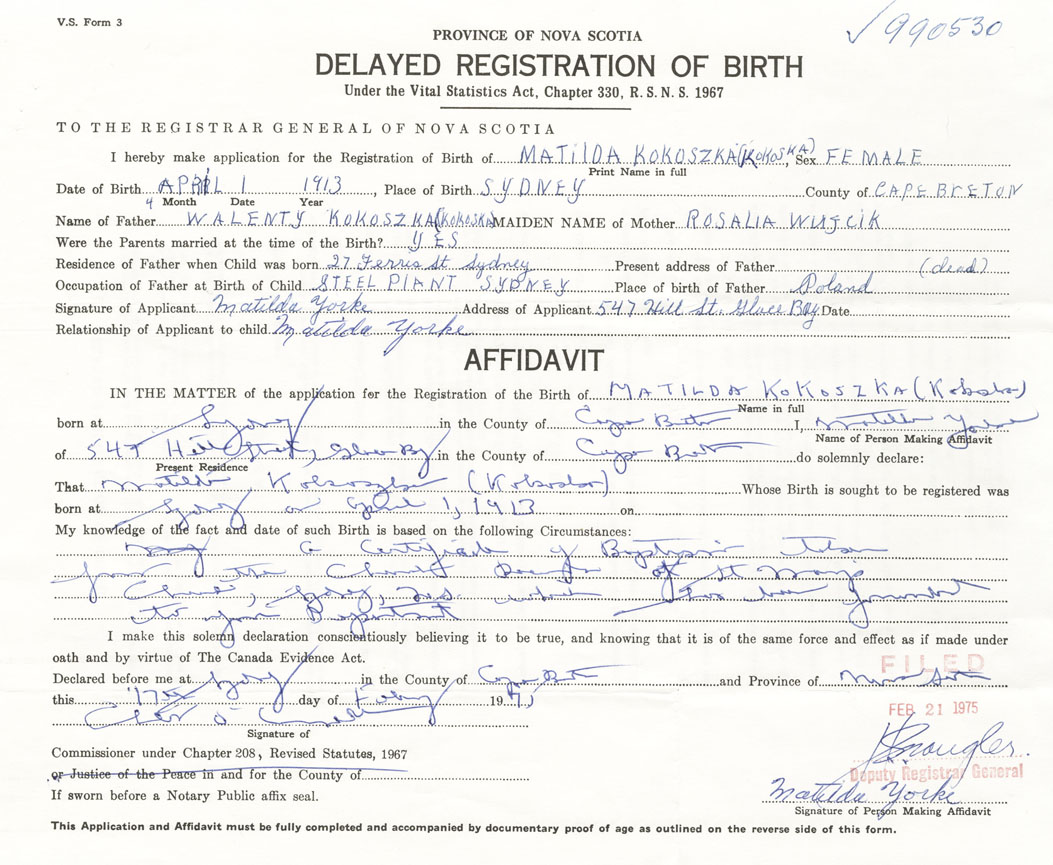 V.S. Form 3
✓ 990530
PROVINCE OF NOVA SCOTIA
DELAYED REGISTRATION OF BIRTH
Under the Vital Statistics Act, Chapter 330, R. S. N. S. 1967
TO THE REGISTRAR GENERAL OF NOVA SCOTIA
I hereby make application for the Registration of Birth of MATILDA KOKOSZKA (KOKOSKA), Sex FEMALE
Print Name in full
Date of Birth APRIL 1 1913, Place of Birth SYDNEY County of CAPE BRETON
4 Month Date Year
Name of Father WALENTY KOKOSZKA (KOKOSKA) MAIDEN NAME of Mother ROSALIA WUJCIK
Were the Parents married at the time of the Birth? YES
Residence of Father when Child was born 27 Ferris St Sydney Present address of Father (dead)
Occupation of Father at Birth of Child STEEL PLANT SYDNEY Place of birth of Father Poland
Signature of Applicant Matilda Yorke Address of Applicant 547 Hill St. Glace Bay Date
Relationship of Applicant to child Matilda Yorke
AFFIDAVIT
IN THE MATTER of the application for the Registration of the Birth of MATILDA KOKOSZKA (Kokoska)
Name in full
born at Sydney in the County of Cape Breton I, Matilda Yorke
Name of Person Making Affidavit
of 547 Hill Street, Glace Bay in the County of Cape Breton do solemnly declare:
Present Residence
That Matilda Kokoszka (Kokoska) Whose Birth is sought to be registered was
born at Sydney on April 1, 1913 on
My knowledge of the fact and date of such Birth is based on the following Circumstances:
a Certificate of Baptism taken
from the Church of St Mary's
Church, Sydney, N.S. which has been
to your Department
I make this solemn declaration conscientiously believing it to be true, and knowing that it is of the same force and effect as if made under
oath and by virtue of The Canada Evidence Act.
FILED
Declared before me at Sydney in the County of Cape Breton and Province of Nova Scotia
this 17th day of 19
FEB 21 1975
Signature of
Commissioner under Chapter 208, Revised Statutes, 1967
or Justice of the Peace in and for the County of
Deputy Registrar General
If sworn before a Notary Public affix seal.
Matilda Yorke
Signature of Person Making Affidavit
This Application and Affidavit must be fully completed and accompanied by documentary proof of age as outlined on the reverse side of this form.